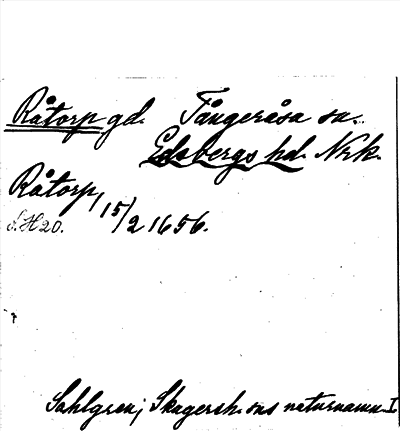 Råtorp gd. Tångeråsa sn.
Edsbergs hd. Nrk.
Råtorp, 15/2 1656.
S.H 20.
Sahlgren; Skagersh. sns naturnamn I